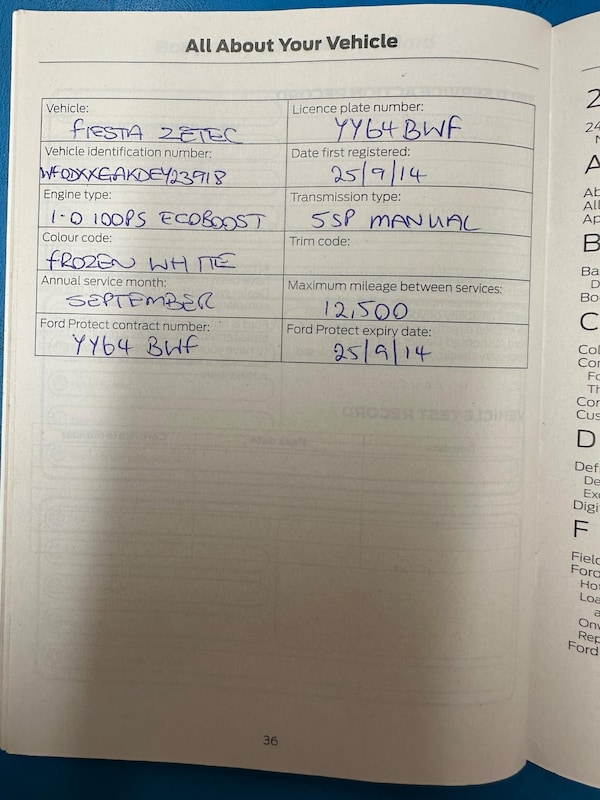 All About Your Vehicle
Vehicle:
FIESTA ZETEC
Licence plate number:
YY64 BWF
Vehicle identification number:
WFODXXGAKDEY23918
Date first registered:
25/9/14
Engine type:
1.0 100PS ECOBOOST
Transmission type:
5SP MANUAL
Colour code:
FROZEN WHITE
Trim code:
Annual service month:
SEPTEMBER
Maximum mileage between services:
12,500
Ford Protect contract number:
YY64 BWF
Ford Protect expiry date:
25/9/14
36
A
B
C
D
F
Ford